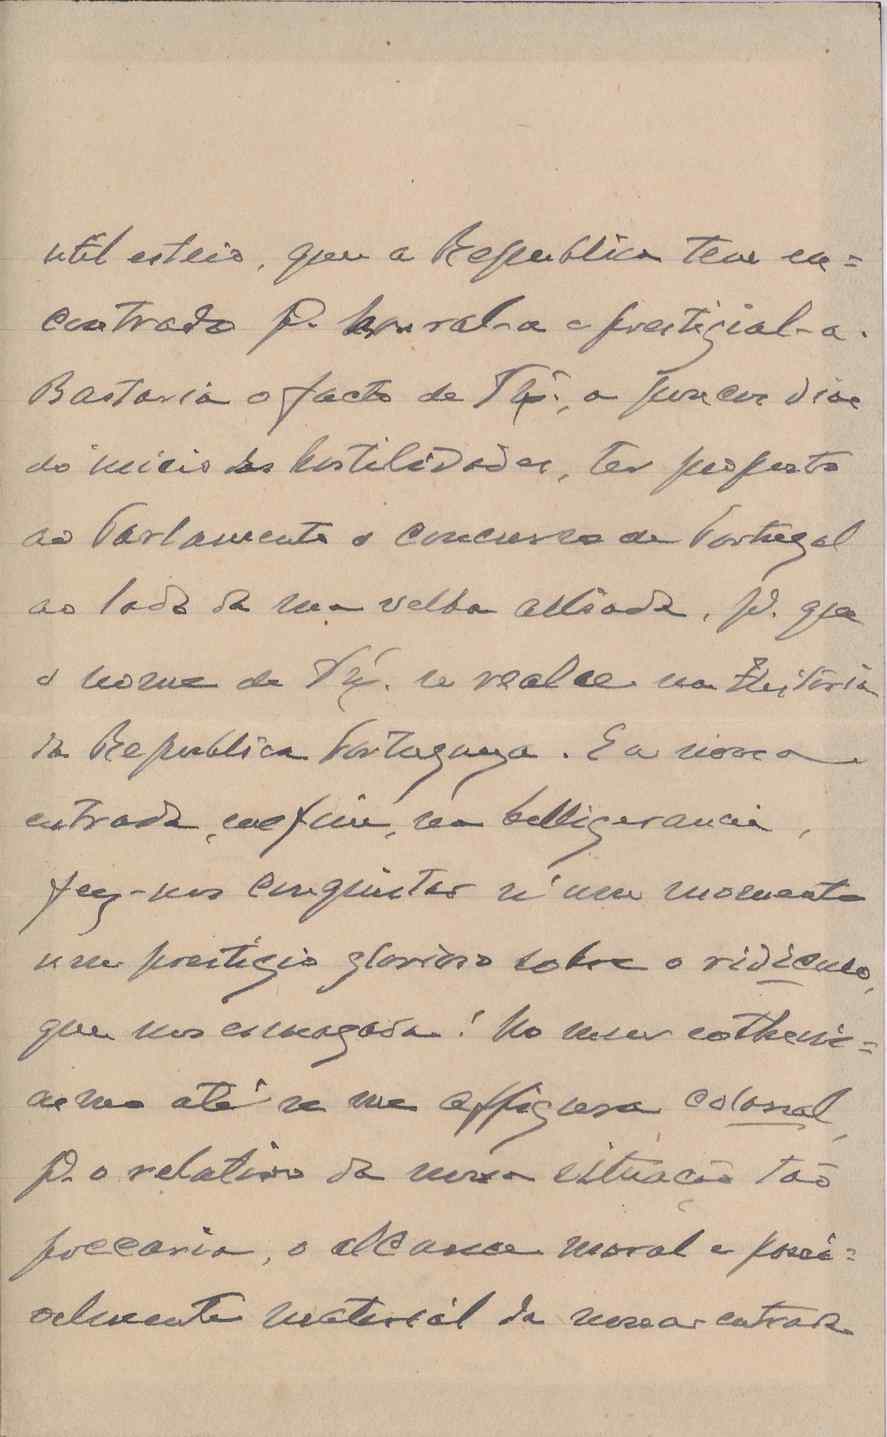 util esteio, que a Republica tem en=
contrado p. honral-a e prestigial-a.
Bastaria o facto de V. Ex.ª, a poucos dias
do inicio das hostilidades, ter proposto
ao Parlamento o concurso de Portugal
ao lado da sua velha alliada, p. que
o nome de V. Ex.ª se realce na Historia
da Republica Portugueza. E a nossa
entrada, emfim, na belligerancia,
fez-nos conquistar n'um momento
um prestigio glorioso sobre o ridiculo,
que nos esmagava! No meu enthusi=
asmo até se me affigura colossal,
p. o relativo da nossa situação tão
precaria, o alcance moral e possi=
velmente material da nossa entrada